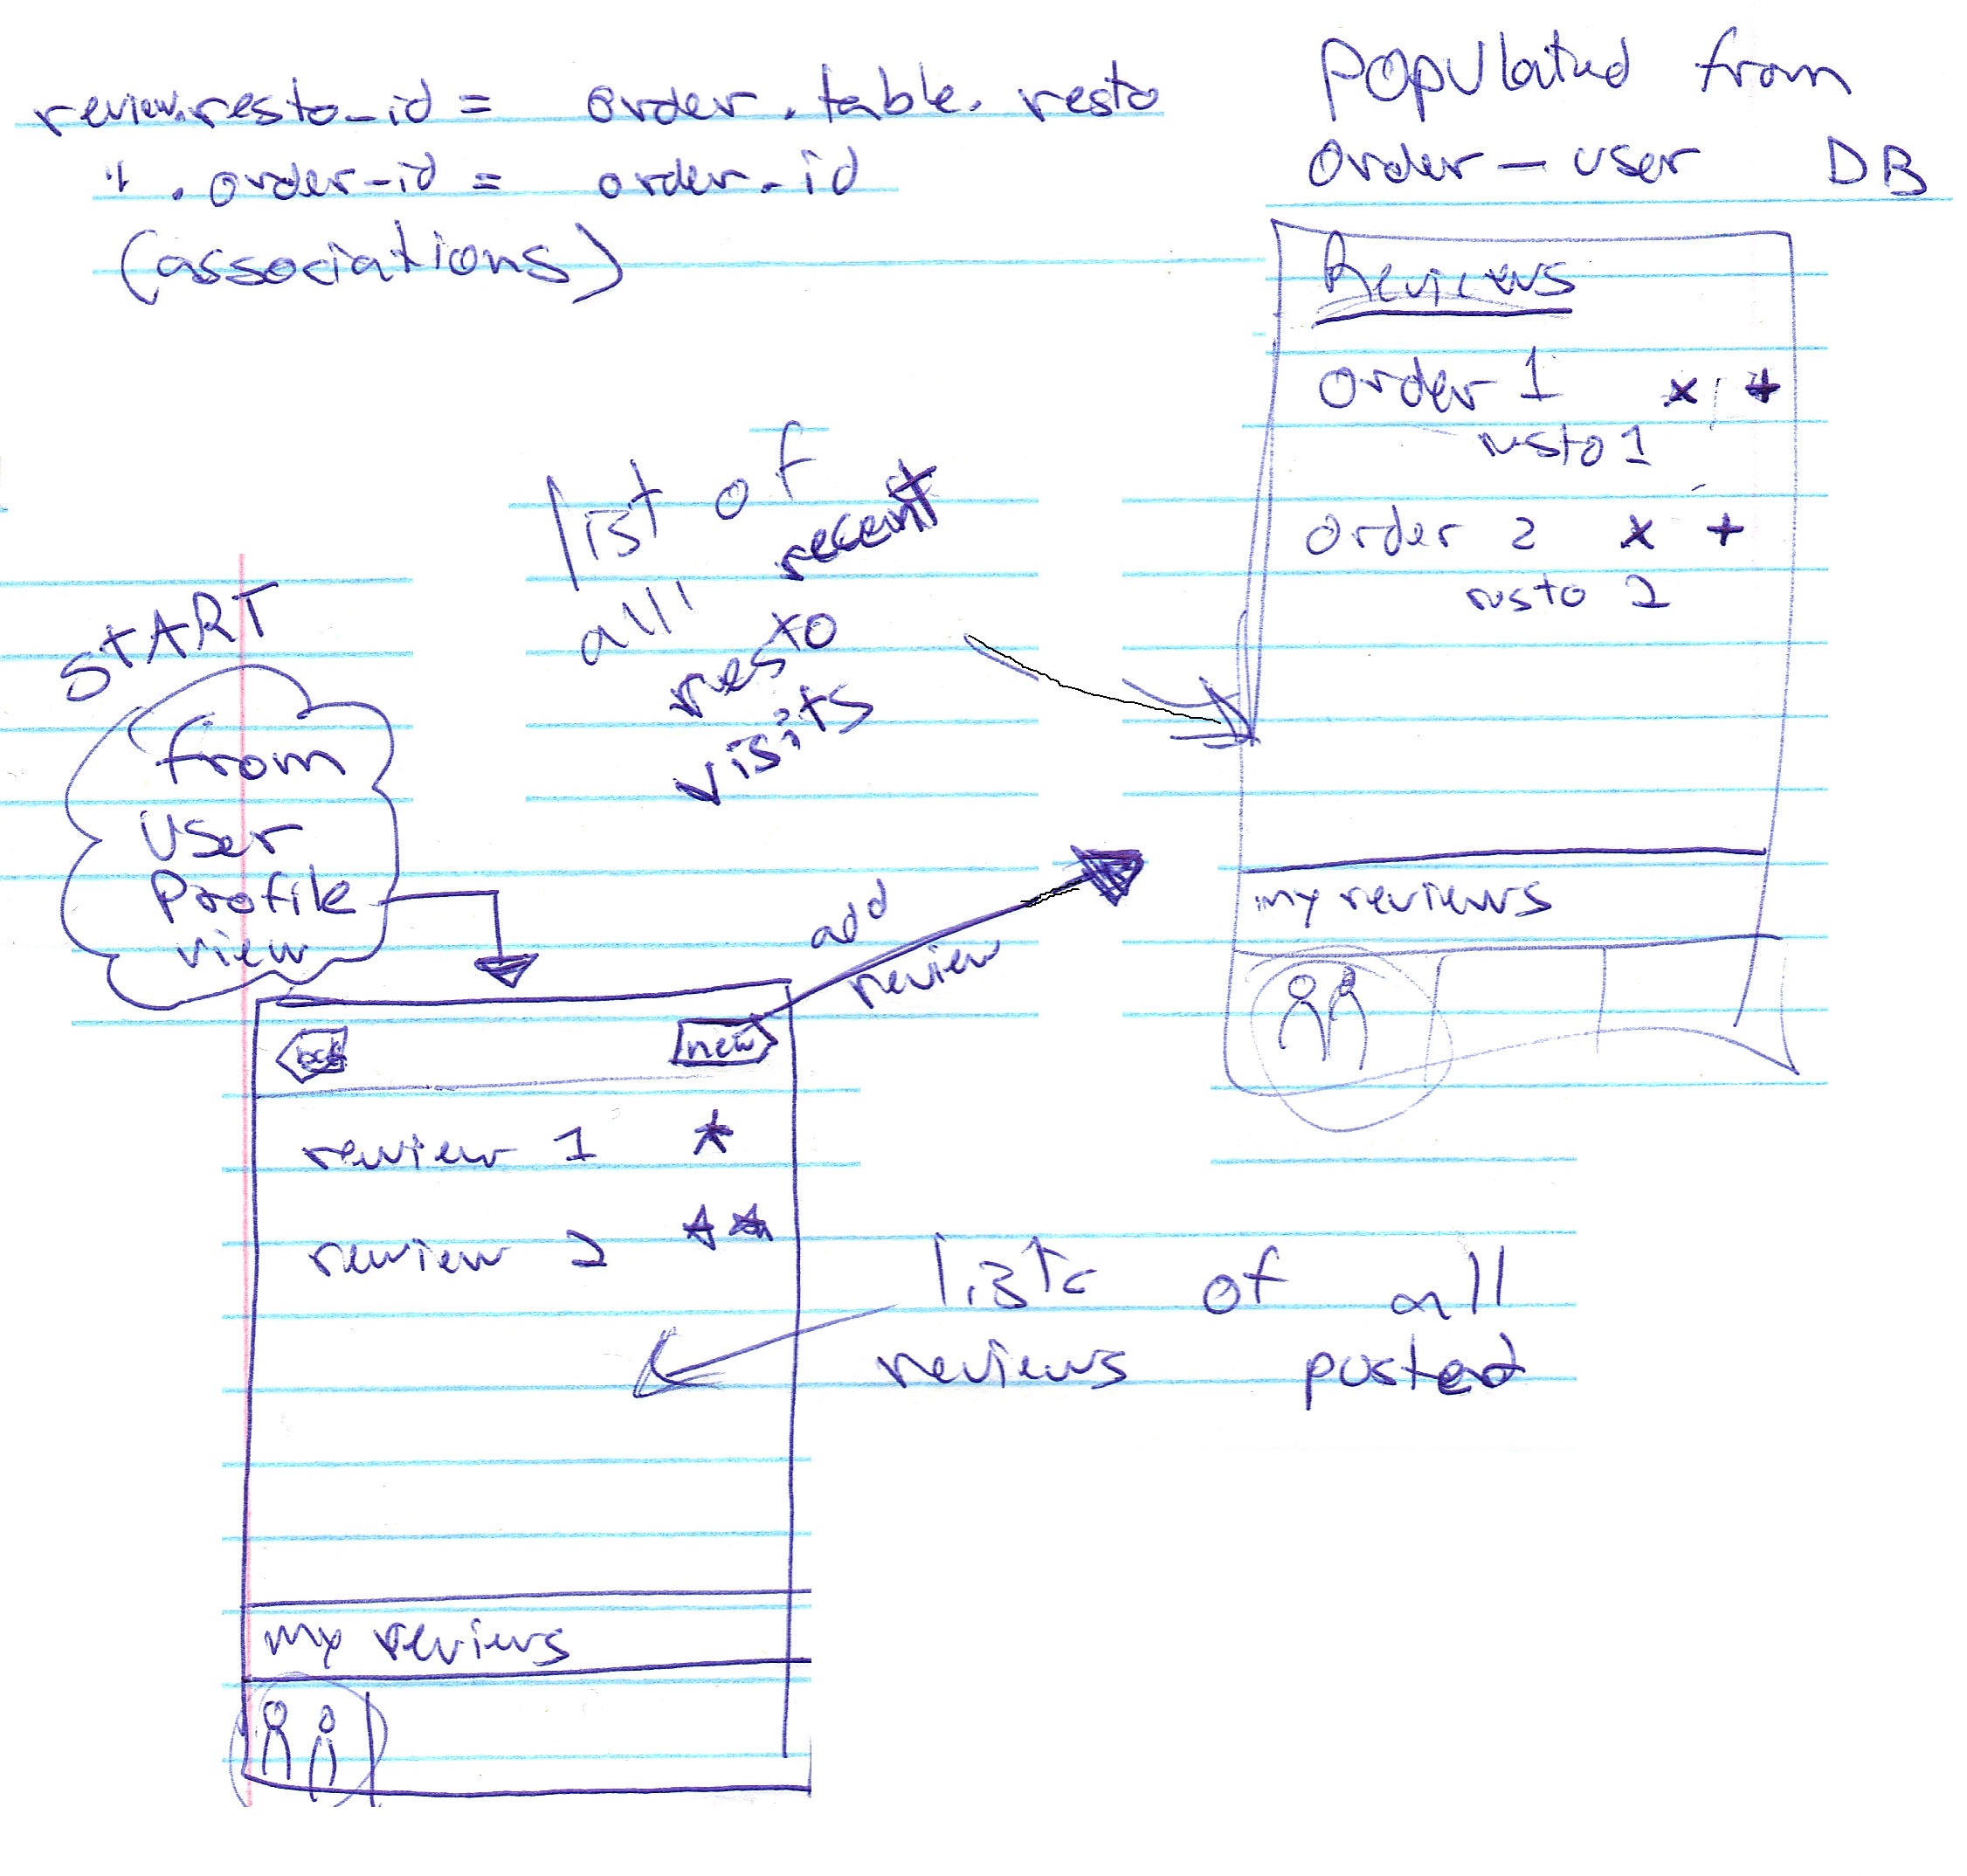 review.resto_id = order.table.resto
" .order-id = order.id
(associations)
Populated from
order - user DB
Reviews
order 1 x +
resto 1
order 2 x +
resto 2
my reviews
list of
all recent
resto
visits
START
from
User
Profile
view
add
review
back
new
review 1 *
review 2 **
lists of all
reviews posted
my reviews